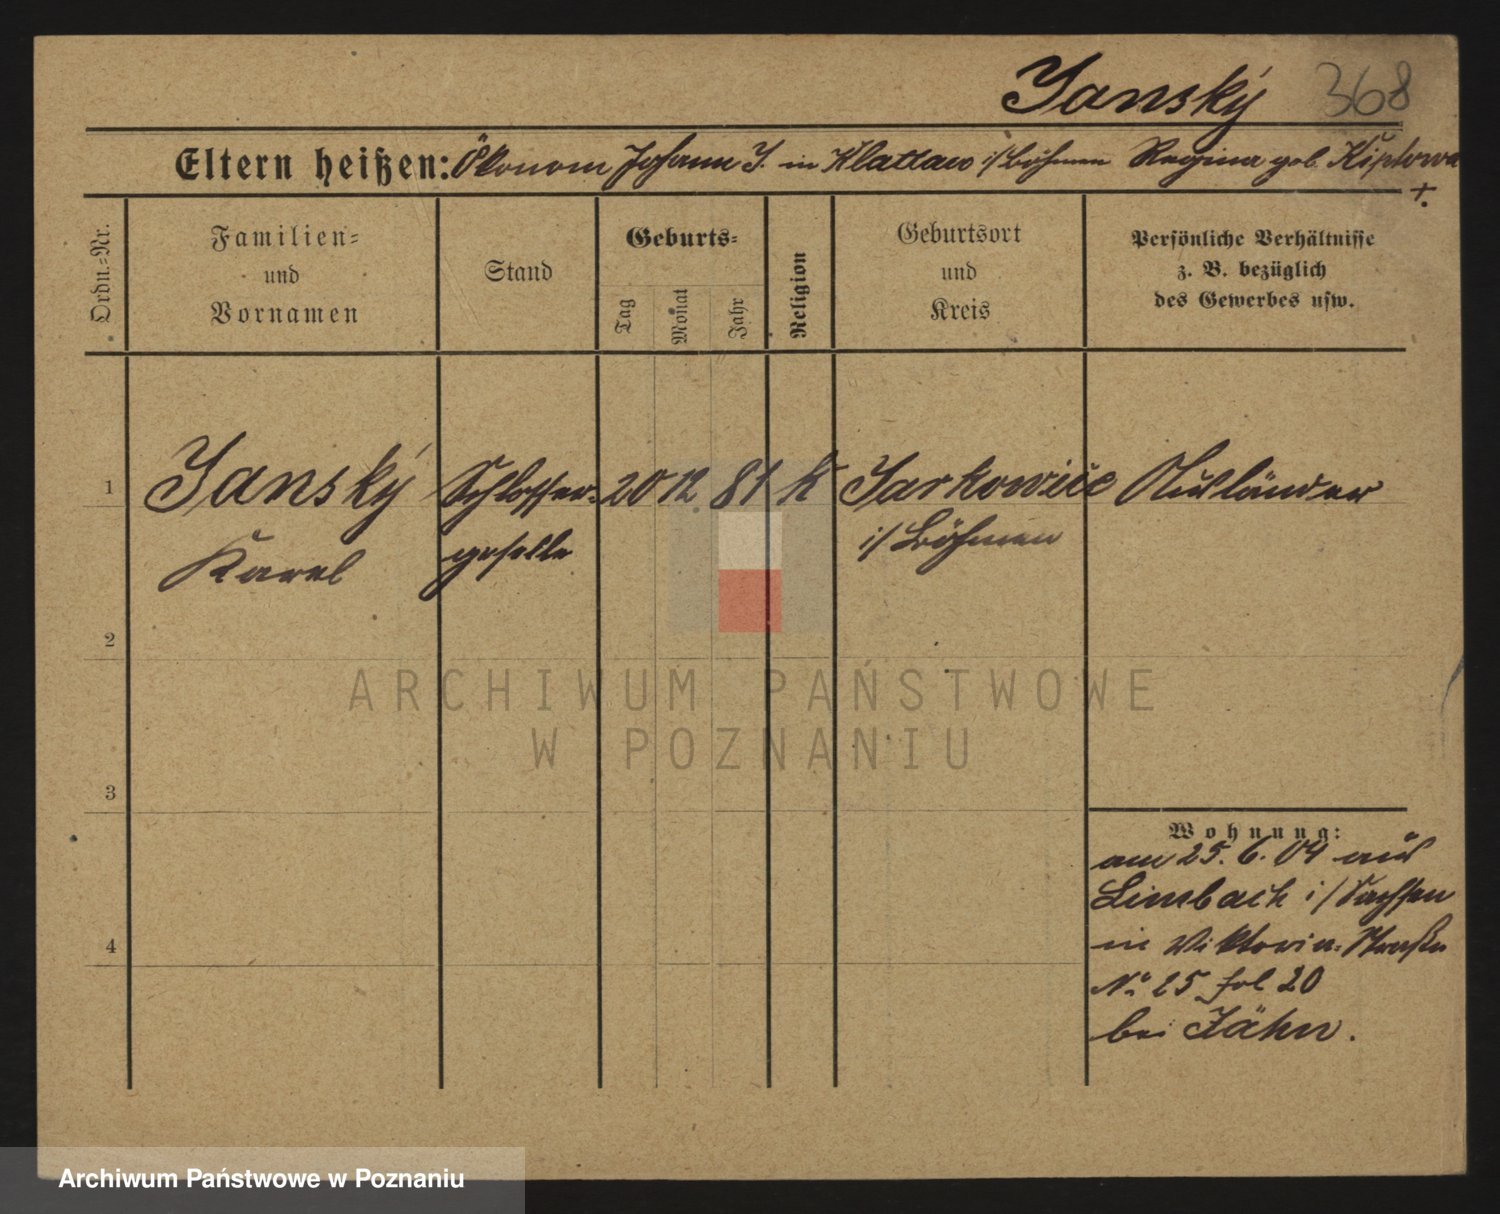 Janský 368
Eltern heißen: Ökonom Johann J. in Klattau i/Böhmen Regina geb.
†.
Ordn.-Nr.
Familien-
und
Vornamen
Stand
Geburts-
Tag
Monat
Jahr
Religion
Geburtsort
und
Kreis
Persönliche Verhältnisse
z. B. bezüglich
des Gewerbes usw.
1 Janský Schlosser- 20 12 81 k Jarkowiče Ausländer
Karel geselle i/Böhmen
2
3
4
Wohnung:
am 25. 6. 04 aus
Limbach i/Sachsen
in Viktoria-Straße
No 15 fol 20
bei Jähn.
ARCHIWUM PAŃSTWOWE
W POZNANIU
Archiwum Państwowe w Poznaniu